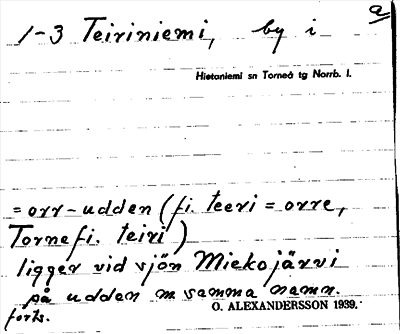 a
1-3 Teiriniemi, by i
Hietaniemi sn Torneå tg Norrb. l.
= orr-udden (fi. teeri = orre,
Tornefi. teiri)
ligger vid sjön Miekojärvi
på udden m samma namn.
forts.
O. ALEXANDERSSON 1939.